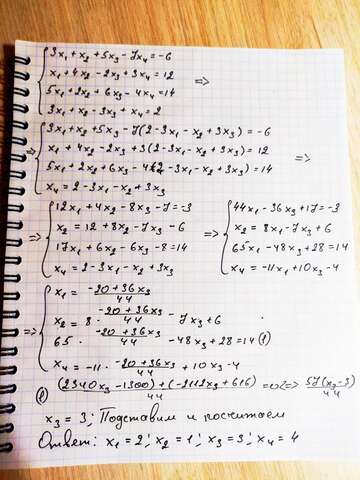 3x₁ + x₂ + 5x₃ - 7x₄ = -6
x₁ + 4x₂ - 2x₃ + 3x₄ = 12 =>
5x₁ + 2x₂ + 6x₃ - 4x₄ = 14
3x₁ + x₂ - 3x₃ + x₄ = 2
3x₁ + x₂ + 5x₃ - 7(2 - 3x₁ - x₂ + 3x₃) = -6
x₁ + 4x₂ - 2x₃ + 3(2 - 3x₁ - x₂ + 3x₃) = 12 =>
=> 5x₁ + 2x₂ + 6x₃ - 4(2 - 3x₁ - x₂ + 3x₃) = 14
x₄ = 2 - 3x₁ - x₂ + 3x₃
12x₁ + 4x₂ - 8x₃ - 7 = -3 44x₁ - 36x₃ + 17 = -3
=> x₂ = 12 + 8x₁ - 7x₃ - 6 => x₂ = 8x₁ - 7x₃ + 6
17x₁ + 6x₂ - 6x₃ - 8 = 14 65x₁ - 48x₃ + 28 = 14
x₄ = 2 - 3x₁ - x₂ + 3x₃ x₄ = -11x₁ + 10x₃ - 4
x₁ = (-20 + 36x₃)/44
=> x₂ = 8 · (-20 + 36x₃)/44 - 7x₃ + 6
65 · (-20 + 36x₃)/44 - 48x₃ + 28 = 14 (1)
x₄ = -11 · (-20 + 36x₃)/44 + 10x₃ - 4
(1) ((2340x₃ - 1300) + (-2112x₃ + 616))/44 = 0 <=> 57(x₃ - 3)/44
x₃ = 3; Подставим и посчитаем
Ответ: x₁ = 2; x₂ = 1; x₃ = 3; x₄ = 4